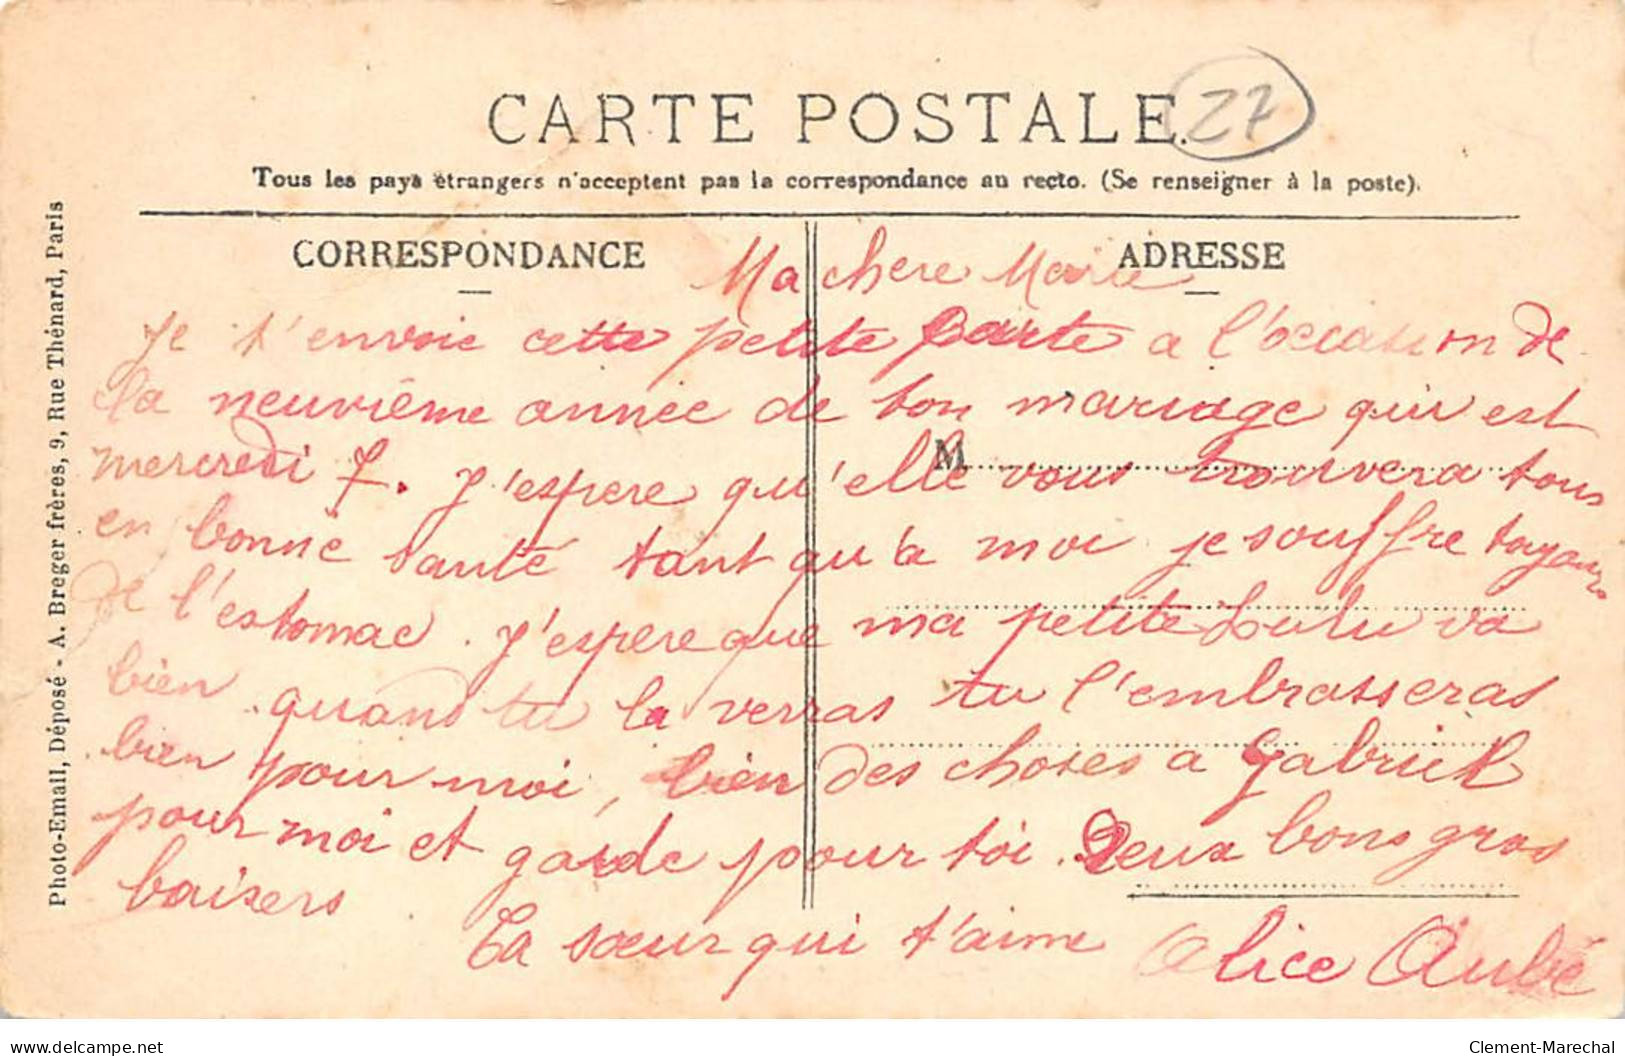 CARTE POSTALE.
27
Tous les pays étrangers n'acceptent pas la correspondance au recto. (Se renseigner à la poste).
CORRESPONDANCE
ADRESSE
Ma chere Marie
Je t'envoie cette petite carte a l'occasion de
la neuvième année de ton mariage qui est
mercredi 7. J'espere qu'elle vous trouvera tous
M
en bonne santé tant qu'a moi je souffre toujours
de l'estomac. J'espere que ma petite Lulu va
bien quand tu la verras tu l'embrasseras
bien pour moi, bien des choses a Gabriel
pour moi et garde pour toi. Deux bons gros
baisers
Ta sœur qui t'aime Alice Aubé
Photo-Email, Déposé - A. Breger frères, 9, Rue Thénard, Paris
delcampe.net
Clement-Marechal